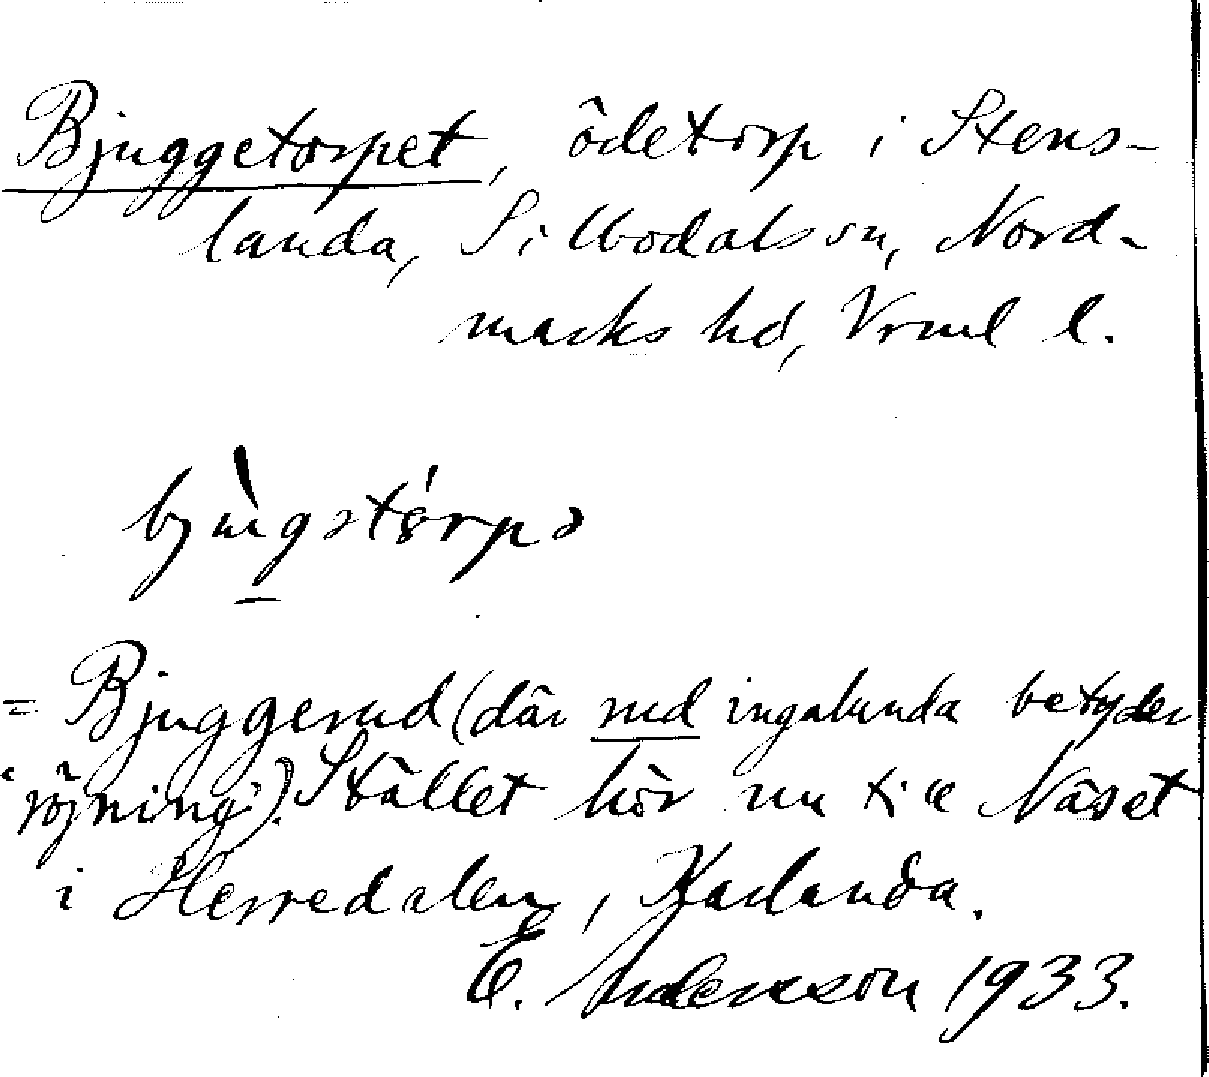 Bjuggetorpet, ödetorp i Stens-
landa, Silbodals sn, Nord-
marks hd, Vrml l.
bjùgətórpə
= Bjuggerud (där rud ingalunda betyder
'röjning'). Stället hör nu till Näset
i Herredalen, Karlanda.
E. Andersson 1933.